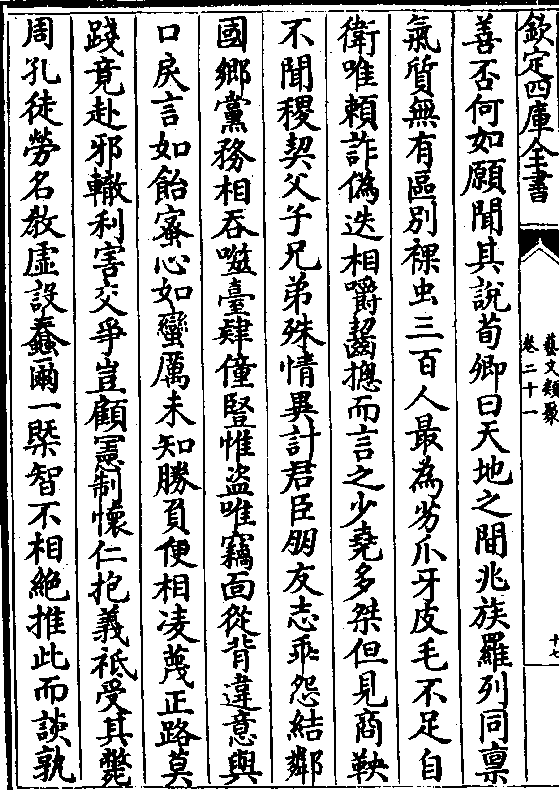 欽定四庫全書
藝文類聚
卷二十一
十七
善否何如願聞其說荀卿曰天地之間兆族羅列同禀
氣質無有區別裸虫三百人最為劣爪牙皮毛不足自
衛唯賴詐偽迭相嚼齧摠而言之少堯多桀但見商鞅
不聞稷契父子兄弟殊情異計君臣朋友志乖怨結鄰
國鄉黨務相吞噬臺肆僮豎惟盜唯竊面從背違意與
口戾言如飴蜜心如蠻厲未知勝負便相凌蔑正路莫
踐竟赴邪轍利害交爭豈顧憲制懷仁抱義祇受其斃
周孔徒勞名教虛設蠢爾一槩智不相絶推此而談孰